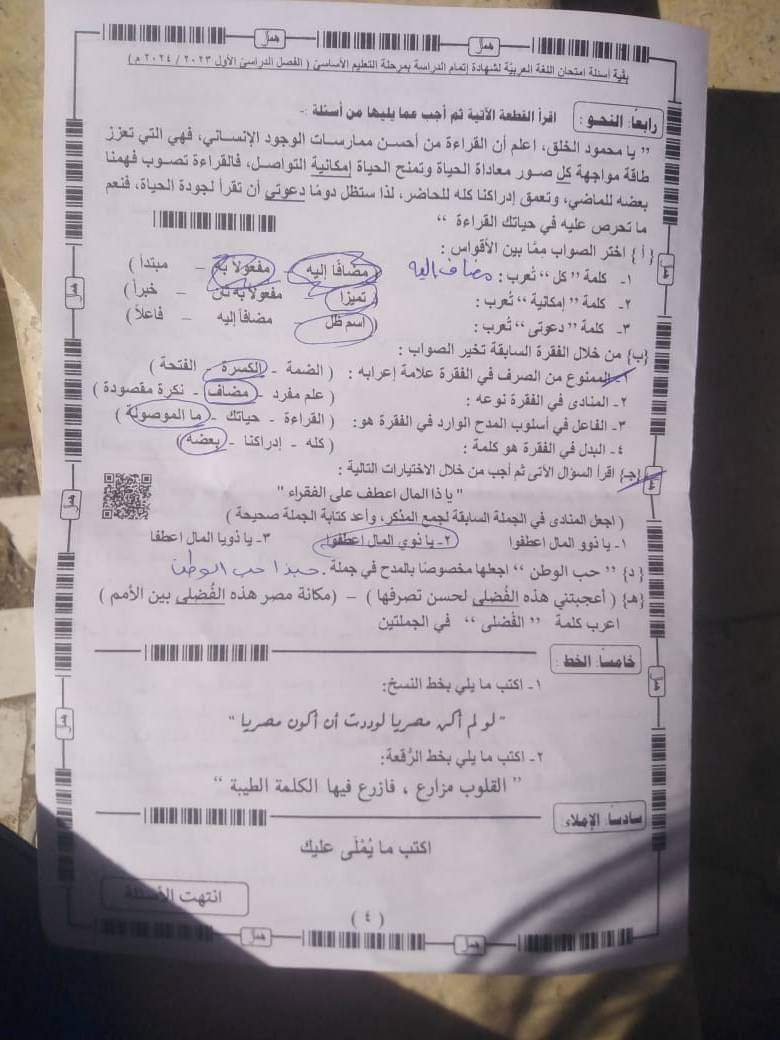 همل همل همل
بقية أسئلة امتحان اللغة العربية لشهادة إتمام الدراسة بمرحلة التعليم الأساسي ( الفصل الدراسي الأول ٢٠٢٣ / ٢٠٢٤ م )
رابعًا: النحو : اقرأ القطعة الآتية ثم أجب عما يليها من أسئلة :-
" يا محمود الخلق، اعلم أن القراءة من أحسن ممارسات الوجود الإنساني، فهي التي تعزز
طاقة مواجهة كل صور معاداة الحياة وتمنح الحياة إمكانية التواصل، فالقراءة تصوب فهمنا
بعضه للماضي، وتعمق إدراكنا كله للحاضر، لذا ستظل دومًا دعوتي أن تقرأ لجودة الحياة، فنعم
ما تحرص عليه في حياتك القراءة "
{ أ } اختر الصواب ممًا بين الأقواس :
١- كلمة " كل " تُعرب : مضاف إليه ( مضافًا إليه - مفعولًا به - مبتدأ )
٢- كلمة " إمكانية " تُعرب : ( تميزًا - مفعولًا به ثان - خبرًا )
٣- كلمة " دعوتي " تُعرب : ( اسم ظل - مضافًا إليه - فاعلًا )
{ب} من خلال الفقرة السابقة تخير الصواب :
١- الممنوع من الصرف في الفقرة علامة إعرابه : ( الضمة - الكسرة - الفتحة )
٢- المنادى في الفقرة نوعه : ( علم مفرد - مضاف - نكرة مقصودة )
٣- الفاعل في أسلوب المدح الوارد في الفقرة هو: ( القراءة - حياتك - ما الموصولة )
٤- البدل في الفقرة هو كلمة : ( كله - إدراكنا - بعضه )
{جـ} اقرأ السؤال الآتى ثم أجب من خلال الاختيارات التالية :
" يا ذا المال اعطف على الفقراء "
( اجعل المنادى في الجملة السابقة لجمع المذكر، وأعد كتابة الجملة صحيحة )
١- يا ذوو المال اعطفوا ٢- يا ذوي المال اعطفوا ٣- يا ذويا المال اعطفا
{د} " حب الوطن " اجعلها مخصوصًا بالمدح في جملة . حبذا حب الوطن
{هـ} ( أعجبتني هذه الفُضلى لحسن تصرفها ) – (مكانة مصر هذه الفُضلى بين الأمم )
اعرب كلمة " الفُضلى " في الجملتين
خامسًا: الخط :
١- اكتب ما يلي بخط النسخ:
" لو لم أكن مصريا لوددت أن أكون مصريا "
٢- اكتب ما يلي بخط الرُقعة:
" القلوب مزارع ، فازرع فيها الكلمة الطيبة "
سادسًا: الإملاء :
اكتب ما يُمْلَى عليك
انتهت الأسئلة
( ٤ )
همل همل